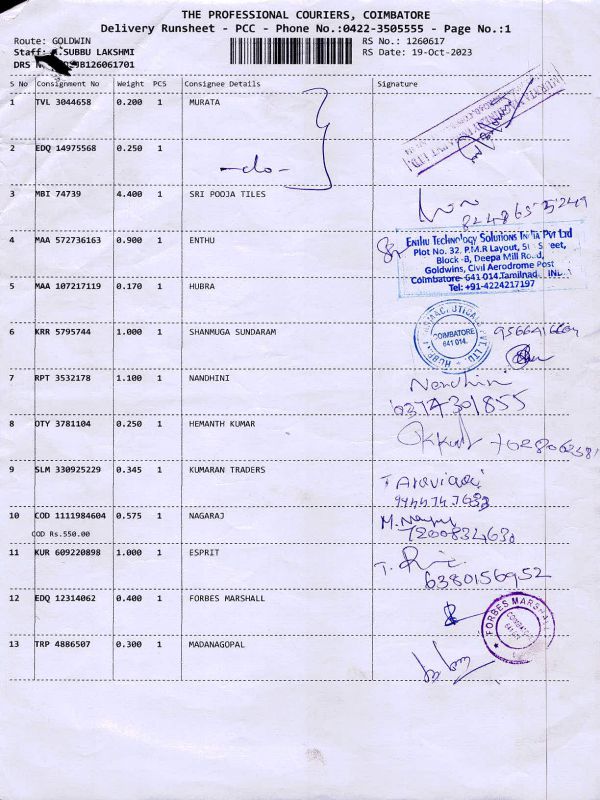 THE PROFESSIONAL COURIERS, COIMBATORE
Delivery Runsheet - PCC - Phone No.:0422-3505555 - Page No.:1
Route: GOLDWIN RS No.: 1260617
Staff: SUBBU LAKSHMI RS Date: 19-Oct-2023
DRS
S No Consignment No Weight PCS Consignee Details Signature
1 TVL 3044658 0.200 1 MURATA
2 EDQ 14975568 0.250 1
-do-
3 MBI 74739 4.400 1 SRI POOJA TILES
4 MAA 572736163 0.900 1 ENTHU
Enthu Technology Solutions India Pvt Ltd
Plot No. 32, P.M.R Layout, Street,
Block -B, Deepa Mill Road,
Goldwins, Civil Aerodrome Post
Coimbatore- 641 014.Tamilnadu,
Tel: +91-4224217197
5 MAA 107217119 0.170 1 HUBRA
COIMBATORE
641 014.
6 KRR 5795744 1.000 1 SHANMUGA SUNDARAM
7 RPT 3532178 1.100 1 NANDHINI
Nandhini
8 OTY 3781104 0.250 1 HEMANTH KUMAR
9 SLM 330925229 0.345 1 KUMARAN TRADERS
10 COD 1111984604 0.575 1 NAGARAJ
COD Rs.550.00
7200834630
11 KUR 609220898 1.000 1 ESPRIT
6380156952
12 EDQ 12314062 0.400 1 FORBES MARSHALL
FORBES MARSHALL
COIMBATORE
13 TRP 4886507 0.300 1 MADANAGOPAL